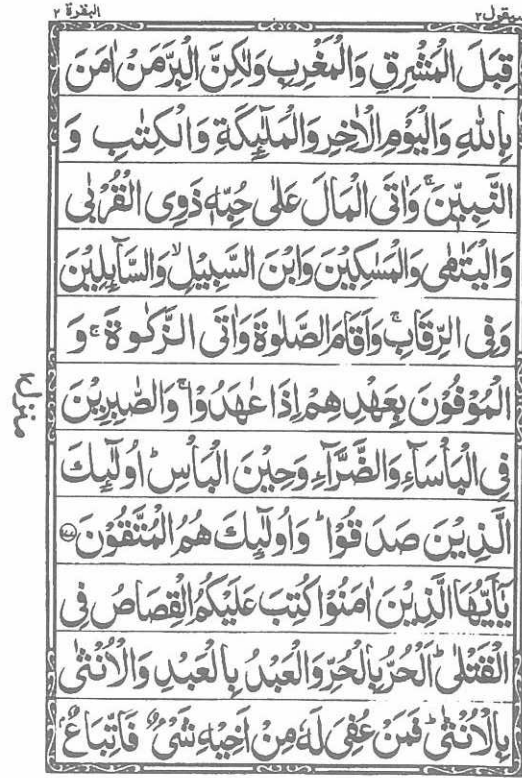 سيقول ٢
البقرة ٢
قِبَلَ الْمَشْرِقِ وَالْمَغْرِبِ وَلٰكِنَّ الْبِرَّ مَنْ اٰمَنَ
بِاللّٰهِ وَالْيَوْمِ الْاٰخِرِ وَالْمَلٰٓئِكَةِ وَالْكِتٰبِ وَ
النَّبِيّٖنَ ۚ وَاٰتَى الْمَالَ عَلٰى حُبِّهٖ ذَوِى الْقُرْبٰى
وَالْيَتٰمٰى وَالْمَسٰكِيْنَ وَابْنَ السَّبِيْلِ ۙ وَالسَّآئِلِيْنَ
وَفِى الرِّقَابِ ۚ وَاَقَامَ الصَّلٰوةَ وَاٰتَى الزَّكٰوةَ ۚ وَ
الْمُوْفُوْنَ بِعَهْدِهِمْ اِذَا عٰهَدُوْا ۚ وَالصّٰبِرِيْنَ
فِى الْبَاْسَآءِ وَالضَّرَّآءِ وَحِيْنَ الْبَاْسِ ؕ اُولٰٓئِكَ
الَّذِيْنَ صَدَقُوْا ؕ وَاُولٰٓئِكَ هُمُ الْمُتَّقُوْنَ ﴿۱۷۷﴾
يٰٓاَيُّهَا الَّذِيْنَ اٰمَنُوْا كُتِبَ عَلَيْكُمُ الْقِصَاصُ فِى
الْقَتْلٰى ؕ اَلْحُرُّ بِالْحُرِّ وَالْعَبْدُ بِالْعَبْدِ وَالْاُنْثٰى
بِالْاُنْثٰى ؕ فَمَنْ عُفِىَ لَهٗ مِنْ اَخِيْهِ شَىْءٌ فَاتِّبَاعٌۢ
منزل ١